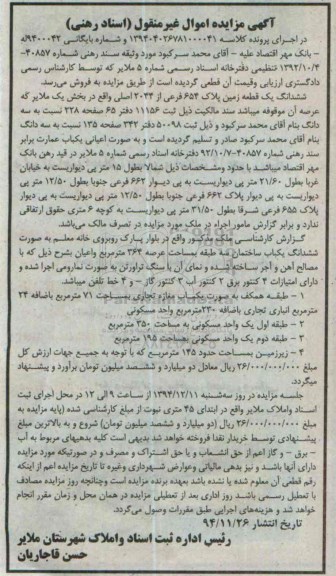 آگهی مزایده اموال غیرمنقول (اسناد رهنی)
در اجرای پرونده کلاسه ۱۳۹۴۰۴۰۲۶۷۸۱۰۰۰۰۴۱ و شماره بایگانی ۹۴۰۰۰۴۲ له
– بانک مهر اقتصاد علیه – آقای محمد سرکبود مورد وثیقه سند رهنی شماره ۴۰۸۵۷–
۱۳۹۲/۱۰/۴ تنظیمی دفترخانه اسناد رسمی شماره ۵ ملایر که توسط کارشناس رسمی
دادگستری ارزیابی وقیمت آن قطعی گردیده است از طریق مزایده به فروش می‌رسد.
ششدانگ یک قطعه زمین پلاک ۶۵۴ فرعی از ۲۰۴۴ اصلی واقع در بخش یک ملایر که
عرصه آن موقوفه میباشد سند مالکیت ذیل ثبت ۱۱۱۵۶ دفتر ۶۵ صفحه ۲۲۸ نسبت به سه
دانگ بنام آقای محمد سرکبود و ذیل ثبت ۵۰۰۹۸ دفتر ۳۴۲ صفحه ۱۳۵ نسبت به سه دانگ
بنام آقای محمد سرکبود صادر و تسلیم گردیده است و به صورت اعیانی یکباب عمارت برابر
سند رهنی شماره ۴۰۸۵۷–۹۲/۱۰/۷ دفترخانه اسناد رسمی شماره ۵ ملایر در قید رهن بانک
مهر اقتصاد میباشد با حدود ومشخصات ذیل شمالا بطول ۱۵ متر پی دیواریست به خیابان
غربا بطول ۲۱/۶۰ متر پی دیواریست به پی دیوار ۶۶۲ فرعی جنوبا بطول ۱۲/۵۰ متر پی
دیواریست به پی دیوار پلاک ۶۶۲ فرعی جنوبا بطول ۱۲/۵۰ متر پی دیواریست به پی دیوار
پلاک ۶۵۵ فرعی شرقا بطول ۳۱/۵۰ متر پی دیواریست به کوچه ۶ متری حقوق ارتفاقی
ندارد و برابر گزارش مامور اجراء در ملک مورد مزایده در تصرف مالک می‌باشد.
گزارش کارشناسی ملک مذکور واقع در بلوار پارک روبروی خانه معلم به صورت
ششدانگ یکباب ساختمان سه طبقه بمساحت عرصه ۳۶۴ مترمربع واعیان بشرح ذیل که با
مصالح آهن و آجر ساخته شده و نمای آن با سنگ تراورتن به صورت نمارومی اجرا شده و
دارای امتیازات ۴ کنتور برق ۲ کنتور آب ۳ کنتور گاز – و ۴ خط تلفن میباشد.
۱ – طبقه همکف به صورت یکباب مغازه تجاری بمساحت ۷۱ مترمربع باضافه ۲۴
مترمربع انباری تجاری باضافه ۲۳۰مترمربع واحد مسکونی
۲ – طبقه اول یک واحد مسکونی به مساحت ۳۵۰ مترمربع
۳ – طبقه دوم یک واحد مسکونی بمساحت ۱۹۵ مترمربع
۴ – زیرزمین بمساحت حدود ۱۴۵ مترمربع که با توجه به جمیع جهات ارزش کل
مبلغ ۲۶/۰۰۰/۰۰۰/۰۰۰ ریال معادل دو میلیارد و ششصد میلیون تومان برآورد و پیشنهاد
میگردد.
جلسه مزایده در روز سه‌شنبه ۱۳۹۴/۱۲/۱۱ از ساعت ۹ الی ۱۲ در محل اجرای ثبت
اسناد واملاک ملایر واقع در ابتدای ۴۵ متری نبوت از مبلغ کارشناسی شده (پایه مزایده به
مبلغ ۲۶/۰۰۰/۰۰۰/۰۰۰ ریال (دو میلیارد و ششصد میلیون تومان) شروع و به بالاترین مبلغ
پیشنهادی توسط خریدار نقدا فروخته خواهد شد بدیهی است کلیه بدهیهای مربوط به آب
– برق – و گاز اعم از حق انشعاب و یا حق اشتراک و مصرف و در صورتیکه مورد مزایده
دارای آنها باشند و نیز بدهی مالیاتی وعوارض شهرداری وغیره تا تاریخ مزایده اعم از اینکه
رقم قطعی آن معلوم شده یا نشده باشد بعهده برنده مزایده است وچنانچه روز مزایده مصادف
با تعطیل رسمی باشد روز اداری بعد از تعطیلی مزایده در همان محل و زمان مقرر انجام
خواهد شد و هزینه‌های اجرایی طبق مقررات وصول می‌گردد.
تاریخ انتشار ۹۴/۱۱/۲۶
رئیس اداره ثبت اسناد واملاک شهرستان ملایر
حسن قاجاریان